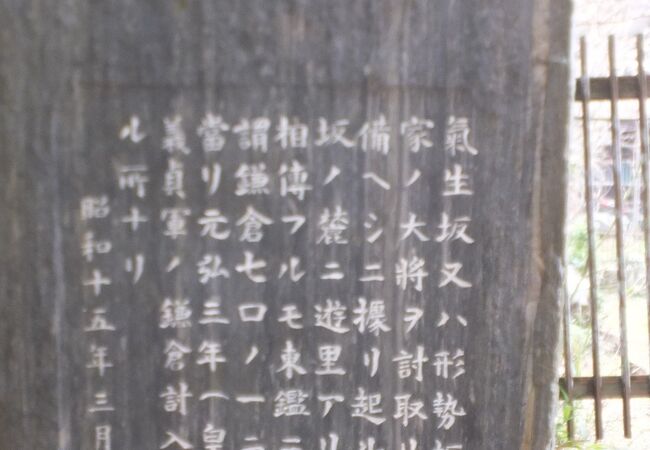 氣生坂又ハ形勢坂
家ノ大將ヲ討取リ
備ヘシニ據リ起ル
坂ノ麓ニ遊里アリ
相傳フルモ東鑑ニ
謂鎌倉七口ノ一ニ
當リ元弘三年(皇
義貞軍ノ鎌倉討入
ル所ナリ
昭和十五年三月